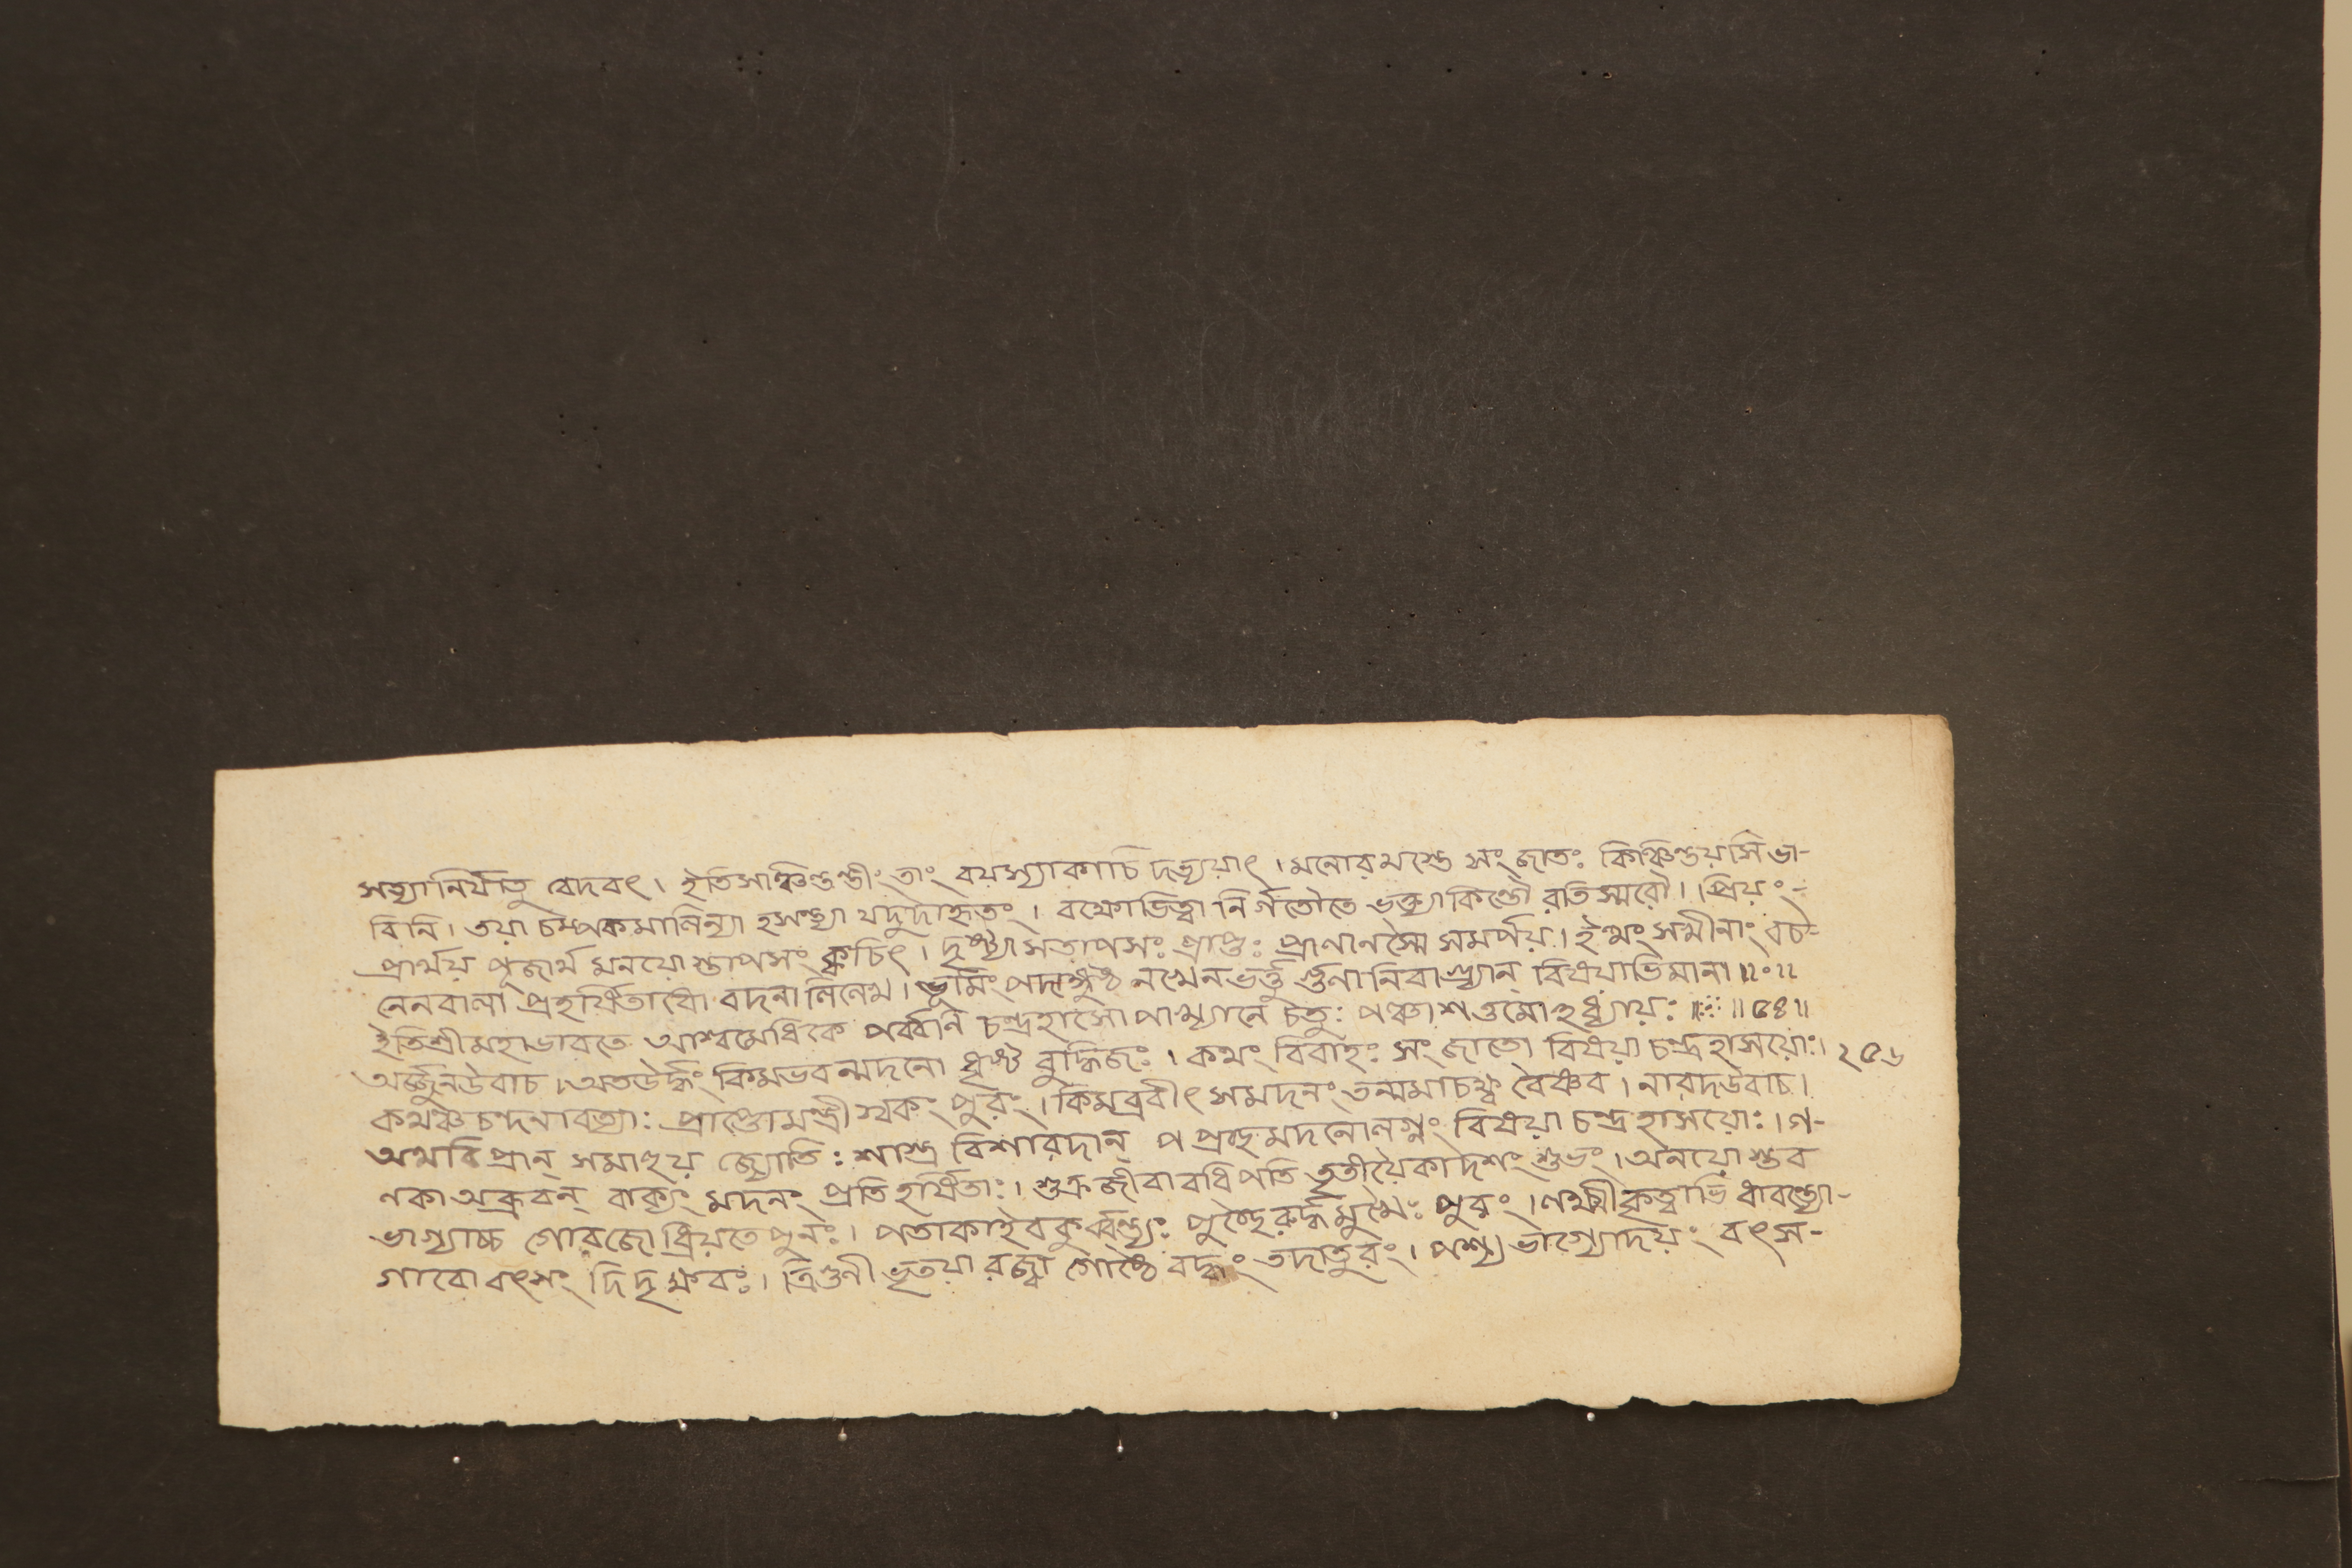 সত্যানির্যাতু বেদবৎ। ইতিসাঞ্চিন্তন্তীং তাং বয়স্যাকাচি দভ্যয়াৎ। মনোরমস্তে সংজাতঃ কিঞ্চিন্তয়সি ভা-
বিনি। তয়া চম্পকমালিন্যা হসন্ত্যা যদুদাহৃতং। বক্ষোভিত্বা নির্গতৌতে ভক্ত্যাকিন্তৌ রতিস্মরৌ। প্রিয়ং-
প্রার্থয় পূজার্থ মনয়োস্তাপসং ক্বচিৎ। দৃষ্ট্যা সতাপসঃ প্রাপ্তঃ প্রাণানস্মৈ সমর্পয়। ইত্থং সখীনাং বচ-
নেনবালা প্রহর্ষিতাধো বদনা লিলেখ। ভূমিং পদাঙ্গুষ্ঠ নখেনভর্ত্তু র্গুণানিবাপ্ত্যান্ বিষয়াভিমানা॥०॥
ইতিশ্রীমহাভারতে আশ্বমেধিকে পর্ব্বণি চন্দ্রহাসো পাখ্যানে চতুঃ পঞ্চাশত্তমোঽধ্যায়ঃ॥ ॥৫৪॥
অর্জ্জুনউবাচ। অতউর্দ্ধং কিমভবন্মদনো ধৃষ্ট বুদ্ধিজঃ। কথং বিবাহঃ সংজাতো বিষয়া চন্দ্রহাসয়োঃ। ২৫৬
কথঞ্চ চন্দনাবত্যাঃ প্রাপ্তোমন্ত্রী স্বকং পুরং। কিমব্রবীৎ সমদনং তন্মমাচক্ষ্ব বৈষ্ণব। নারদউবাচ।
অথবিপ্রান্ সমাহুয় জ্যোতিঃ শাস্ত্র বিশারদান্ পপ্রচ্ছমদনোলগ্নং বিষয়া চন্দ্রহাসয়োঃ। গ-
ণকা অব্রুবন্ বাক্যং মদনং প্রতিহর্ষিতাঃ। শুক্রজীবাবধিপতি তৃতীয়ৈকাদশং শুভং। অনয়োস্তব
ভাগ্যাচ্চ গোরজো ধ্রিয়তেপুনঃ। পতাকাইবকুর্ব্বন্ত্যঃ পুচ্ছৈরুর্দ্ধমুখৈঃ পুরং। লক্ষ্মীকৃত্বাভি ধাবন্ত্যো-
গাবো বৎসং দিদৃক্ষবঃ। ত্রিগুণী ভূতয়া রজ্জ্বা গোষ্ঠে বদ্ধং তদাতুরং। পশ্য ভাগ্যোদয়ং বৎস-